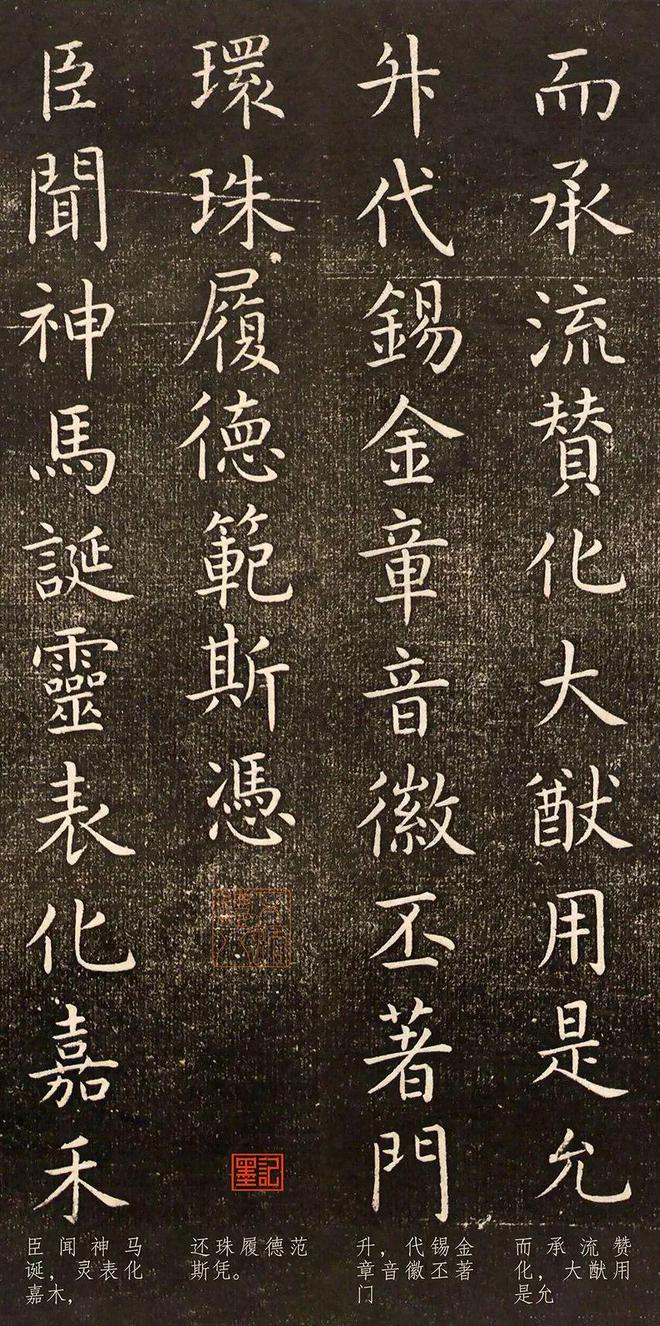 而承流賛化大猷用是允
升代錫金章音徽丕著門
環珠履德範斯憑
臣聞神馬誕靈表化嘉禾
墨記
而承流赞
化，大猷用
是允
升，代锡金
章音徽丕著
门
还珠履德范
斯凭。
臣闻神马
诞，灵表化
嘉木，